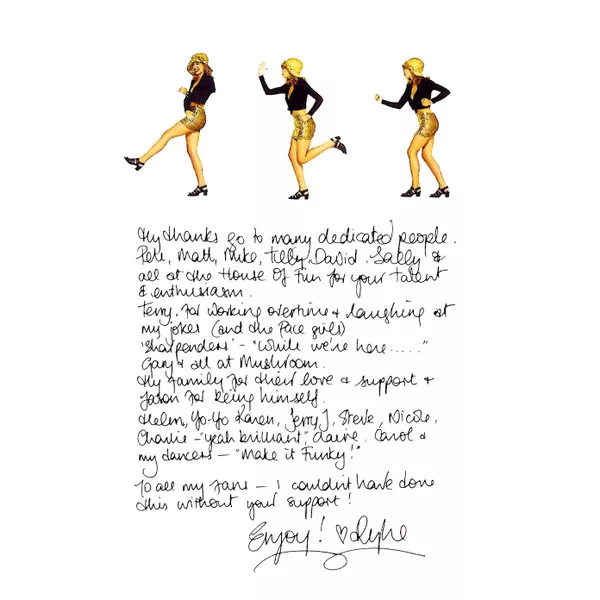 My thanks go to many dedicated people.
Pete, Matt, Mike, Tilly, David. Sally &
all at the House Of Fun for your talent
& enthusiasm.
Terry, for working overtime & laughing at
my jokes (and the Face girls)
'Sharpenders' - "While we're here....."
Gary & all at Mushroom.
My Family for their love & support &
Jason for being himself.
Helen, Yo-Yo Karen, Jerry J, Steve, Nicole,
Charlie - "yeah brilliant", Claire. Carol &
my dancers - "Make it Funky!"
To all my fans - I couldn't have done
this without your support!
Enjoy! ♡